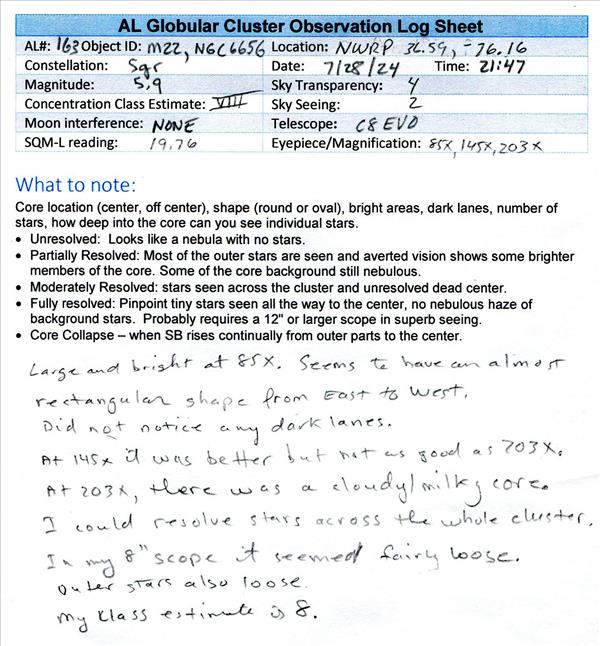 AL Globular Cluster Observation Log Sheet
AL#: 163 Object ID: M22, NGC6656 Location: NWRP 36.59, -76.16
Constellation: Sgr Date: 7/28/24 Time: 21:47
Magnitude: 5,9 Sky Transparency: 4
Concentration Class Estimate: VIII Sky Seeing: 2
Moon interference: NONE Telescope: C8 EVO
SQM-L reading: 19.76 Eyepiece/Magnification: 85X, 145X, 203X
What to note:
Core location (center, off center), shape (round or oval), bright areas, dark lanes, number of
stars, how deep into the core can you see individual stars.
• Unresolved: Looks like a nebula with no stars.
• Partially Resolved: Most of the outer stars are seen and averted vision shows some brighter
members of the core. Some of the core background still nebulous.
• Moderately Resolved: stars seen across the cluster and unresolved dead center.
• Fully resolved: Pinpoint tiny stars seen all the way to the center, no nebulous haze of
background stars. Probably requires a 12" or larger scope in superb seeing.
• Core Collapse – when SB rises continually from outer parts to the center.
Large and bright at 85X. Seems to have an almost
rectangular shape from East to West.
Did not notice any dark lanes.
At 145x it was better but not as good as 203X.
At 203X, there was a cloudy/milky core.
I could resolve stars across the whole cluster.
In my 8" scope it seemed fairly loose.
Outer stars also loose.
My Class estimate is 8.